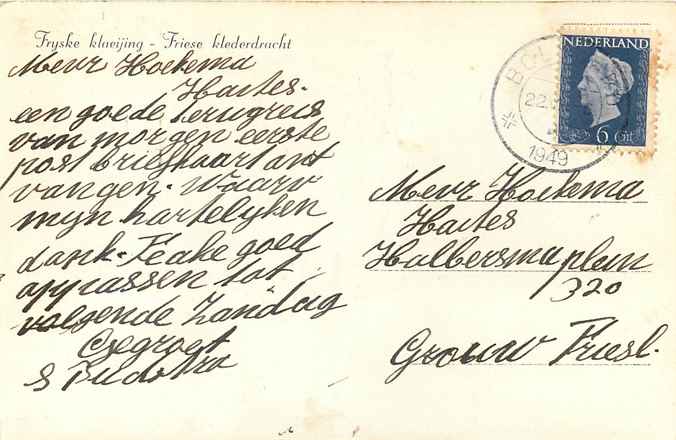 Fryske klaeijing - Friese klederdracht
Mevr Hoekema
Haites.
een goede terugreis
van morgen eerste
post briefkaart ont
vangen. Waarv
mijn hartelyken
dank. Feake goed
oppassen tot
volgende Zondag
Gegroet
S
NEDERLAND
6 ct
BOL
22.
1949
Mevr Hoekema
Haites
Halbersmaplein
320
Grouw Friesl.